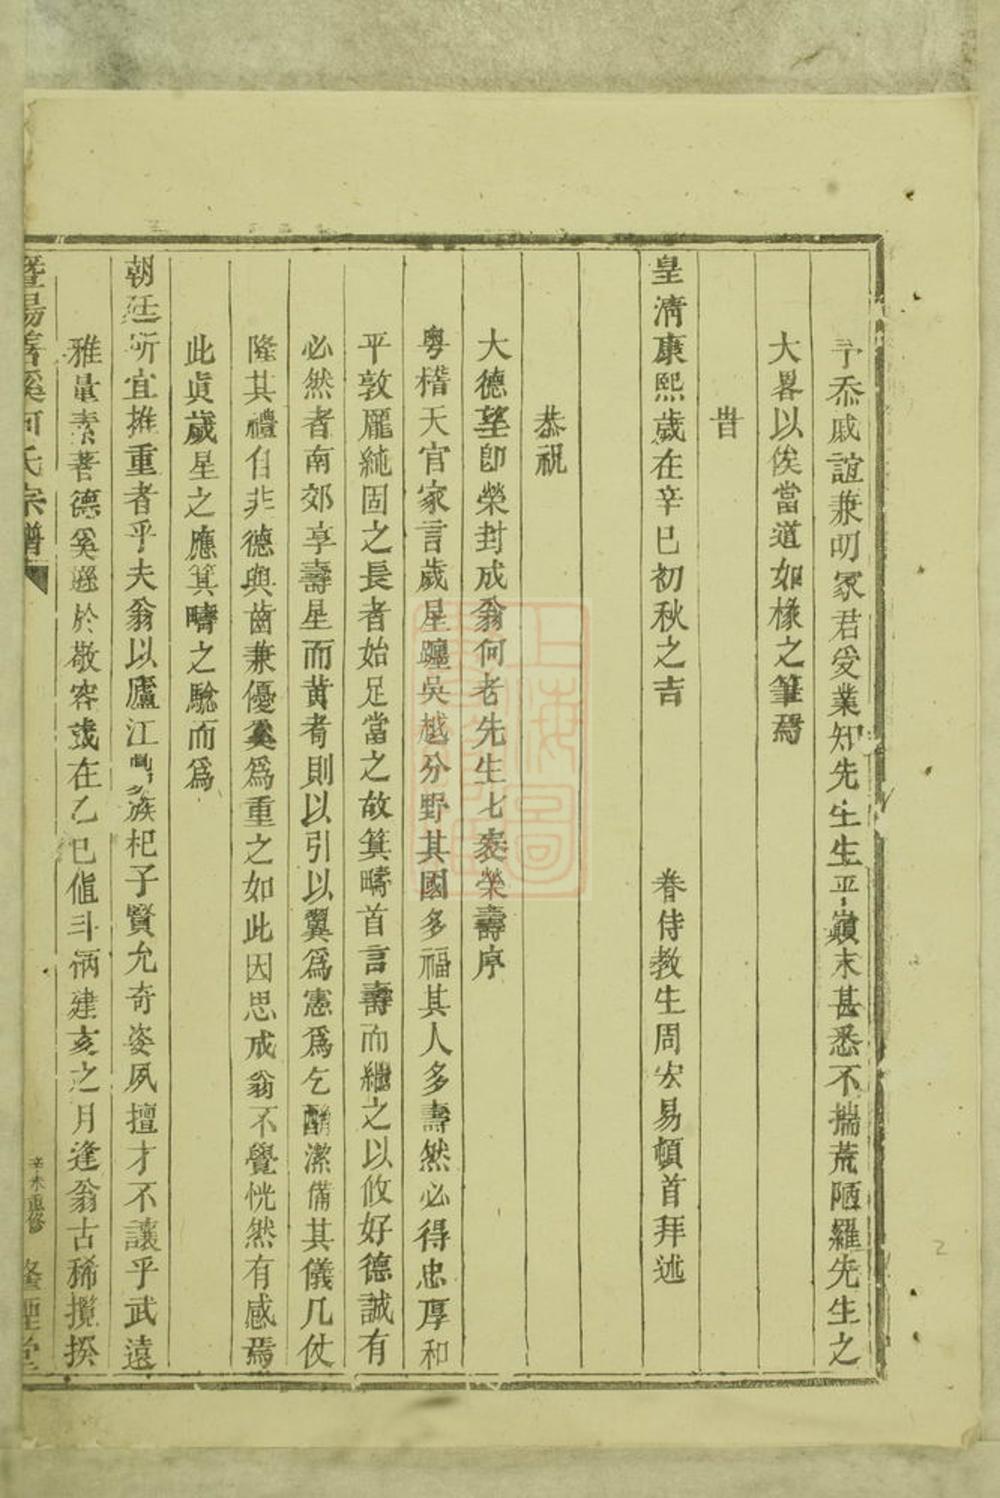 予忝戚誼兼叨冢君受業知先生生平巔末甚悉不揣荒陋羅先生之
大畧以俟當道如椽之筆焉
旹
皇清康熙歲在辛巳初秋之吉 眷侍教生周宏易頓首拜述
恭祝
大德望卽榮封成翁何老先生七袠榮壽序
粵稽天官家言歲星躔吳越分野其國多福其人多壽然必得忠厚和
平敦龐純固之長者始足當之故箕疇首言壽而繼之以攸好德誠有
必然者南郊享壽星而黃耇則以引以翼爲憲爲乞酳潔備其儀几仗
隆其禮自非德與齒兼優奚爲重之如此因思成翁不覺恍然有感焉
此眞歲星之應箕疇之驗而爲
朝廷所宜推重者乎夫翁以廬江族杞子賢允奇姿夙擅才不讓乎武遠
雅量素著德奚遜於敬容或在乙巳値斗柄建亥之月逢翁古稀攬揆
暨陽善溪何氏宗譜 辛未重修